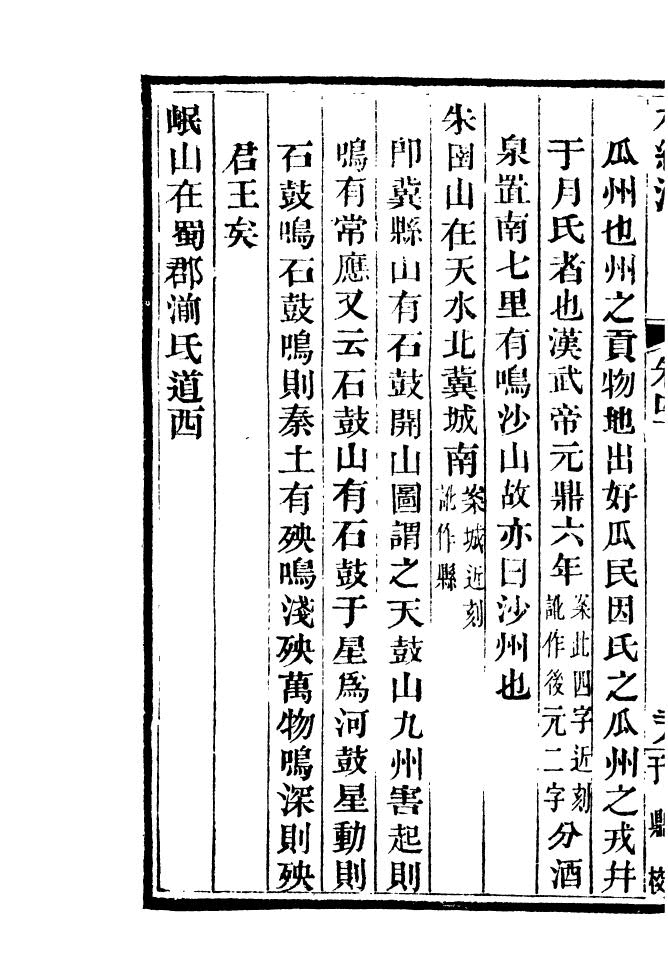 水經注
卷四十
刊
瓜州也州之貢物地出好瓜民因氏之瓜州之戎幷
于月氏者也漢武帝元鼎六年案此四字近刻訛作後元二字分酒
泉置南七里有鳴沙山故亦曰沙州也
朱圉山在天水北冀城南案城近刻訛作縣
卽冀縣山有石鼓開山圖謂之天鼓山九州害起則
鳴有常應又云石鼓山有石鼓于星爲河鼓星動則
石鼓鳴石鼓鳴則秦土有殃鳴淺殃萬物鳴深則殃
君王矣
岷山在蜀郡湔氐道西